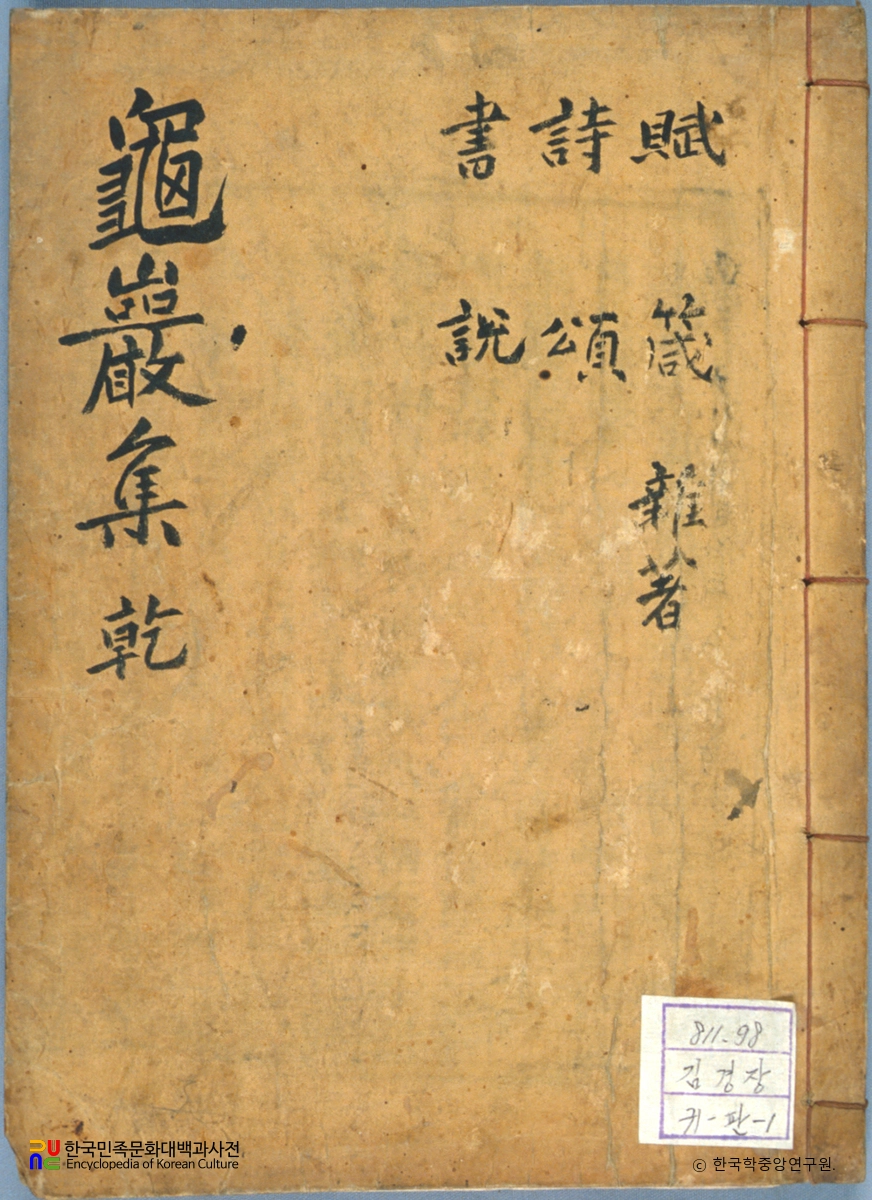 賦 箴 雜著
詩 頌
書 說
龜巖集 乾
811.98
김경장
귀-판-1
한국민족문화대백과사전
Encyclopedia of Korean Culture
© 한국학중앙연구원.